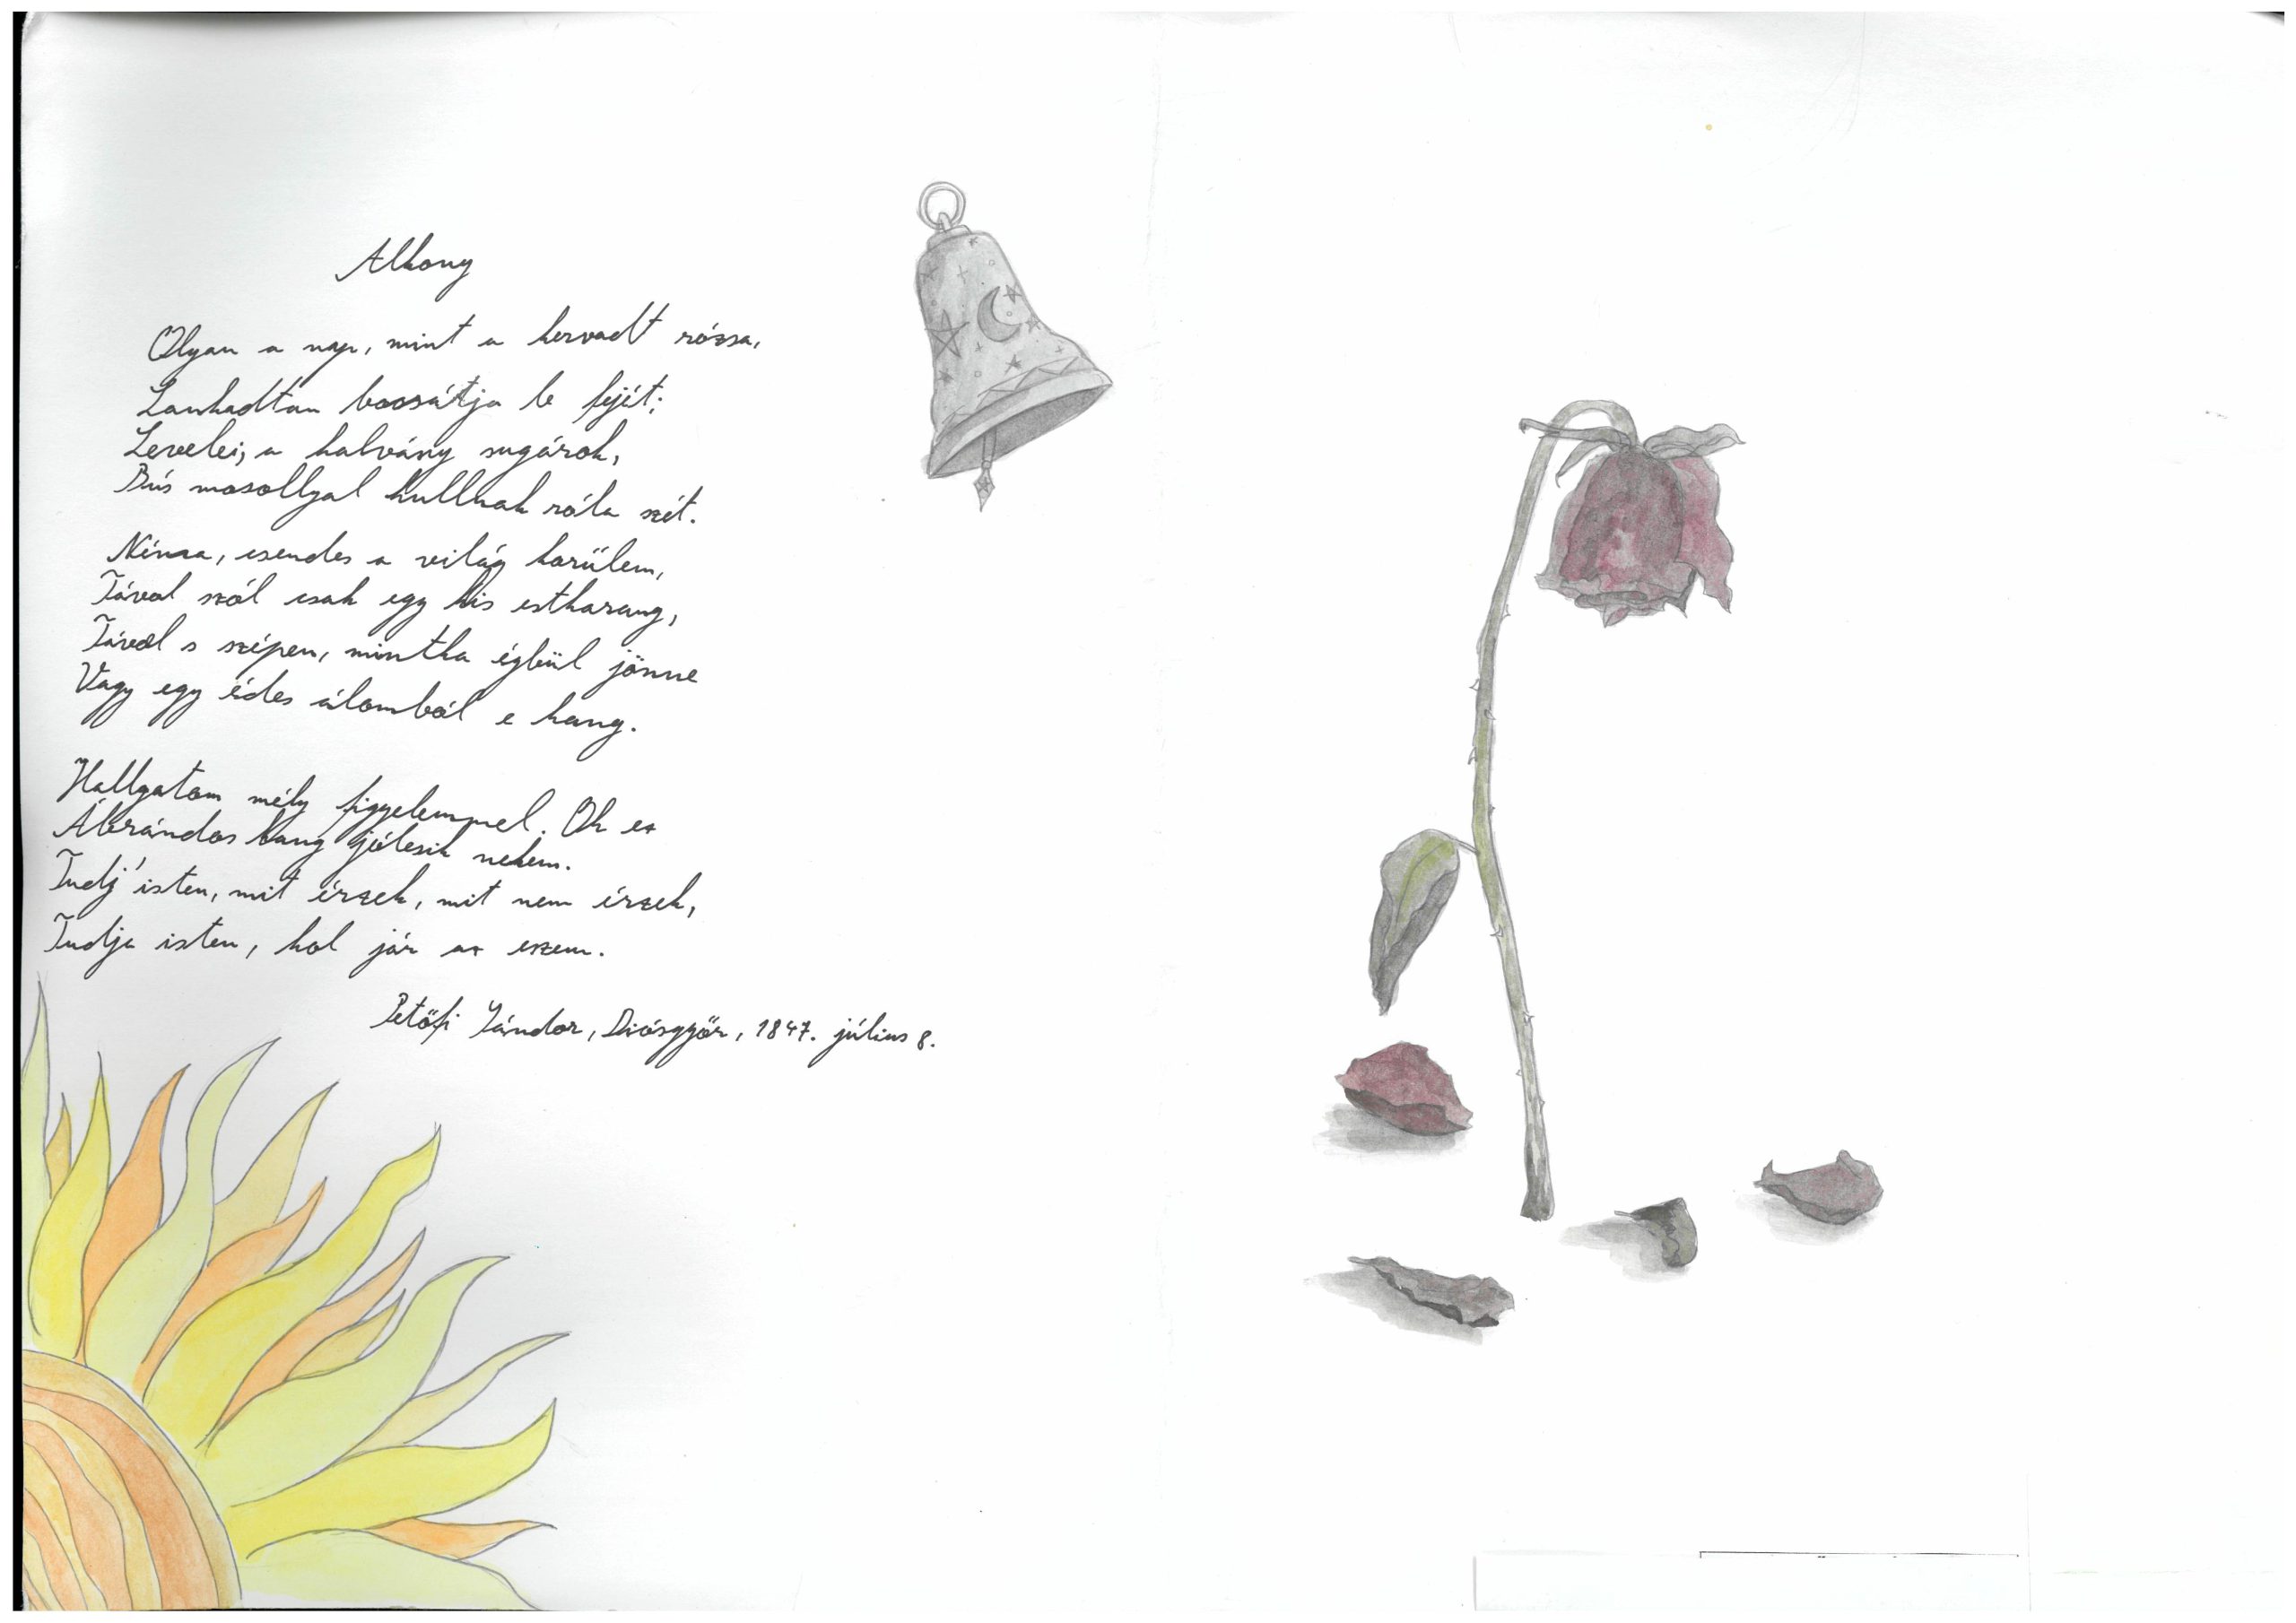 Alkony
Olyan a nap, mint a hervadt rózsa,
Lankadtan bocsátja le fejét;
Levelei, a halvány sugárok,
Bús mosollyal hullnak róla szét.
Néma, csendes a világ körülem,
Távol szól csak egy kis estharang,
Távol s szépen, mintha égbül jönne
Vagy egy édes álomból e hang.
Hallgatom mély figyelemmel. Oh ez
Ábrándos hang jólesik nekem.
Tudj' isten, mit érzek, mit nem érzek,
Tudja isten, hol jár az eszem.
Petőfi Sándor, Diósgyőr, 1847. július 8.